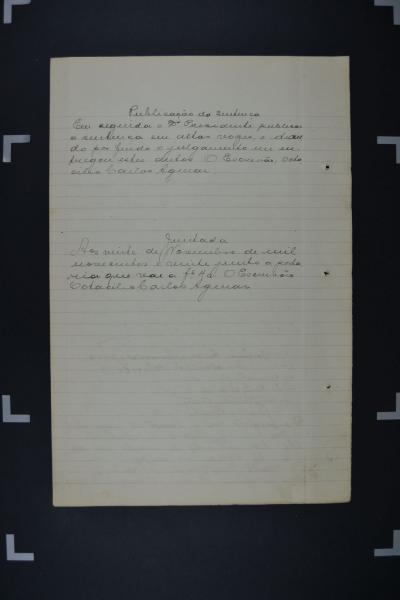 Publicação da sentença
Em seguida o Dr. Presidente publicou
a sentença em altas vozes, e dan-
do por findo o julgamento me en-
tregou estes autos. O Escrivão, Octa-
cilio Carlos Aguiar.
Juntada
Aos vinte de Novembro de mil
novecentos e vinte junto a porta-
ria que vae a fs 42. O Escrivão
Octacilio Carlos Aguiar